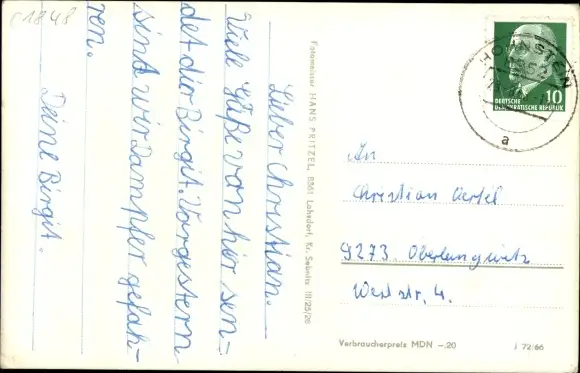 C1848
Lieber Christian.
Viele Grüße von hier sen=
det dir Birgit. Vorgestern
sind wir Dampfer gefah-
ren.
Deine Birgit.
Fotomeister HANS PRITZEL, 8361 Lohsdorf, Kr. Sebnitz III/25/26
10
DEUTSCHE
DEMOKRATISCHE REPUBLIK
HOHNSTEIN
a
An
Christian Oertel
9273 Oberlungwitz
Weststr. 4.
Verbraucherpreis MDN -,20
J 72/66